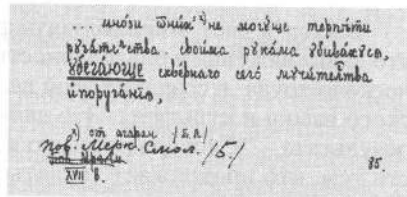 ... мнѡзи ѿнихъ ˣ⁾ не могѹще терпѣти
рѹгателства своима рѹкама ѹбиваxѹсѧ,
ѹбѣгающе сквернаго сего мѹчителства
и порѹганїѧ,
х) от агарян /Б.А./
Пов. Мерк. Смол. /Б./
XVII в.
85.